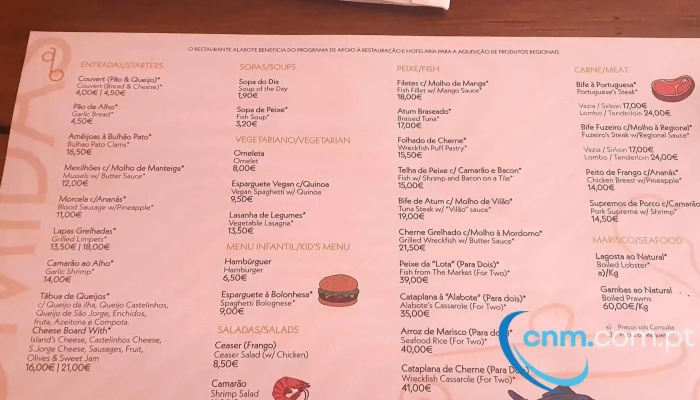 O RESTAURANTE ALABOTE BENEFICIA DO PROGRAMA DE APOIO À RESTAURAÇÃO E HOTELARIA PARA A AQUISIÇÃO DE PRODUTOS REGIONAIS
ENTRADAS/STARTERS
Couvert (Pão & Queijo)*
Couvert (Bread & Cheese)*
4,00€ | 4,50€
Pão de Alho*
Garlic Bread*
4,50€
Amêijoas à Bulhão Pato*
Bulhao Pato Clams*
16,50€
Mexilhões c/Molho de Manteiga*
Mussels w/ Butter Sauce*
12,00€
Morcela c/Ananás*
Blood Sausage w/Pineapple*
11,00€
Lapas Grelhadas*
Grilled Limpets*
13,50€ | 18,00€
Camarão ao Alho*
Garlic Shrimp*
14,00€
Tábua de Queijos*
c/ Queijo da ilha, Queijo Castelinhos,
Queijo de São Jorge, Enchidos,
fruta, Azeitona e Compota.
Cheese Board With*
Island's Cheese, Castelinhos Cheese,
S.Jorge Cheese, Sausages, Fruit,
Olives & Sweet Jam
16,00€ | 21,00€
SOPAS/SOUPS
Sopa do Dia
Soup of the Day
1,90€
Sopa de Peixe*
Fish Soup*
3,20€
VEGETARIANO/VEGETARIAN
Omeleta
Omelet
8,00€
Esparguete Vegan c/Quinoa
Vegan Spaghetti w/ Quinoa
9,50€
Lasanha de Legumes*
Vegetable Lasagna*
13,50€
MENU INFANTIL/KID'S MENU
Hambúrguer
Hamburger
6,50€
Esparguete à Bolonhesa*
Spaghetti Bolognese*
9,00€
SALADAS/SALADS
Ceaser (Frango)
Ceaser Salad (w/ Chicken)
8,50€
Camarão
Shrimp Salad
PEIXE/FISH
Filetes c/Molho de Manga*
Fish Fillet w/ Mango Sauce*
18,00€
Atum Braseado*
Braised Tuna*
17,00€
Folhado de Cherne*
Wreckfish Puff Pastry*
15,50€
Telha de Peixe c/ Camarão e Bacon*
Fish w/ Shrimp and Bacon on a Tile*
15,00€
Bife de Atum c/ Molho de Vilão*
Tuna Steak w/ "Vilão" sauce*
19,00€
Cherne Grelhado c/Molho à Mordomo*
Grilled Wreckfish w/ Butter Sauce*
21,50€
Peixe da "Lota" (Para Dois)*
Fish from The Market (For Two)*
39,00€
Cataplana à "Alabote" (Para dois)*
Alabote's Cassarole (For Two)*
35,00€
Arroz de Marisco (Para dois)*
Seafood Rice (For Two)*
40,00€
Cataplana de Cherne (Para Dois)*
Wreckfish Cassarole (For Two)*
41,00€
CARNE/MEAT
Bife à Portuguesa*
Portuguese's Steak*
Vazia / Sirloin 17,00€
Lombo / Tenderloin 24,00€
Bife Fuzeiro c/Molho à Regional*
Fuzeiro's Steak w/Regional Sauce*
Vazia / Sirloin 17,00€
Lombo / Tenderloin 24,00€
Peito de Frango c/Ananás*
Chicken Breast w/Pineapple*
14,00€
Supremos de Porco c/Camarão
Pork Supreme w/ Shrimp*
14,50€
MARISCO/SEAFOOD
Lagosta ao Natural*
Boiled Lobster*
a)/Kg
Gambas ao Natural
Boiled Prawns
60,00€/Kg
a) Preços sob Consulta
cnm.com.pt